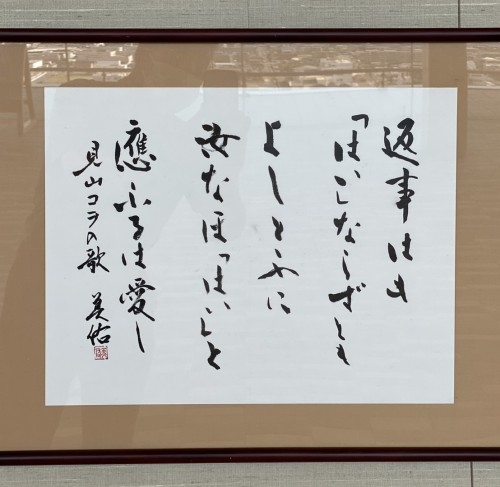 返事はも
「はい」ならずとも
よしとふに
汝なほ「はい」と
應ふるは愛し
見山コヲの歌 美佑